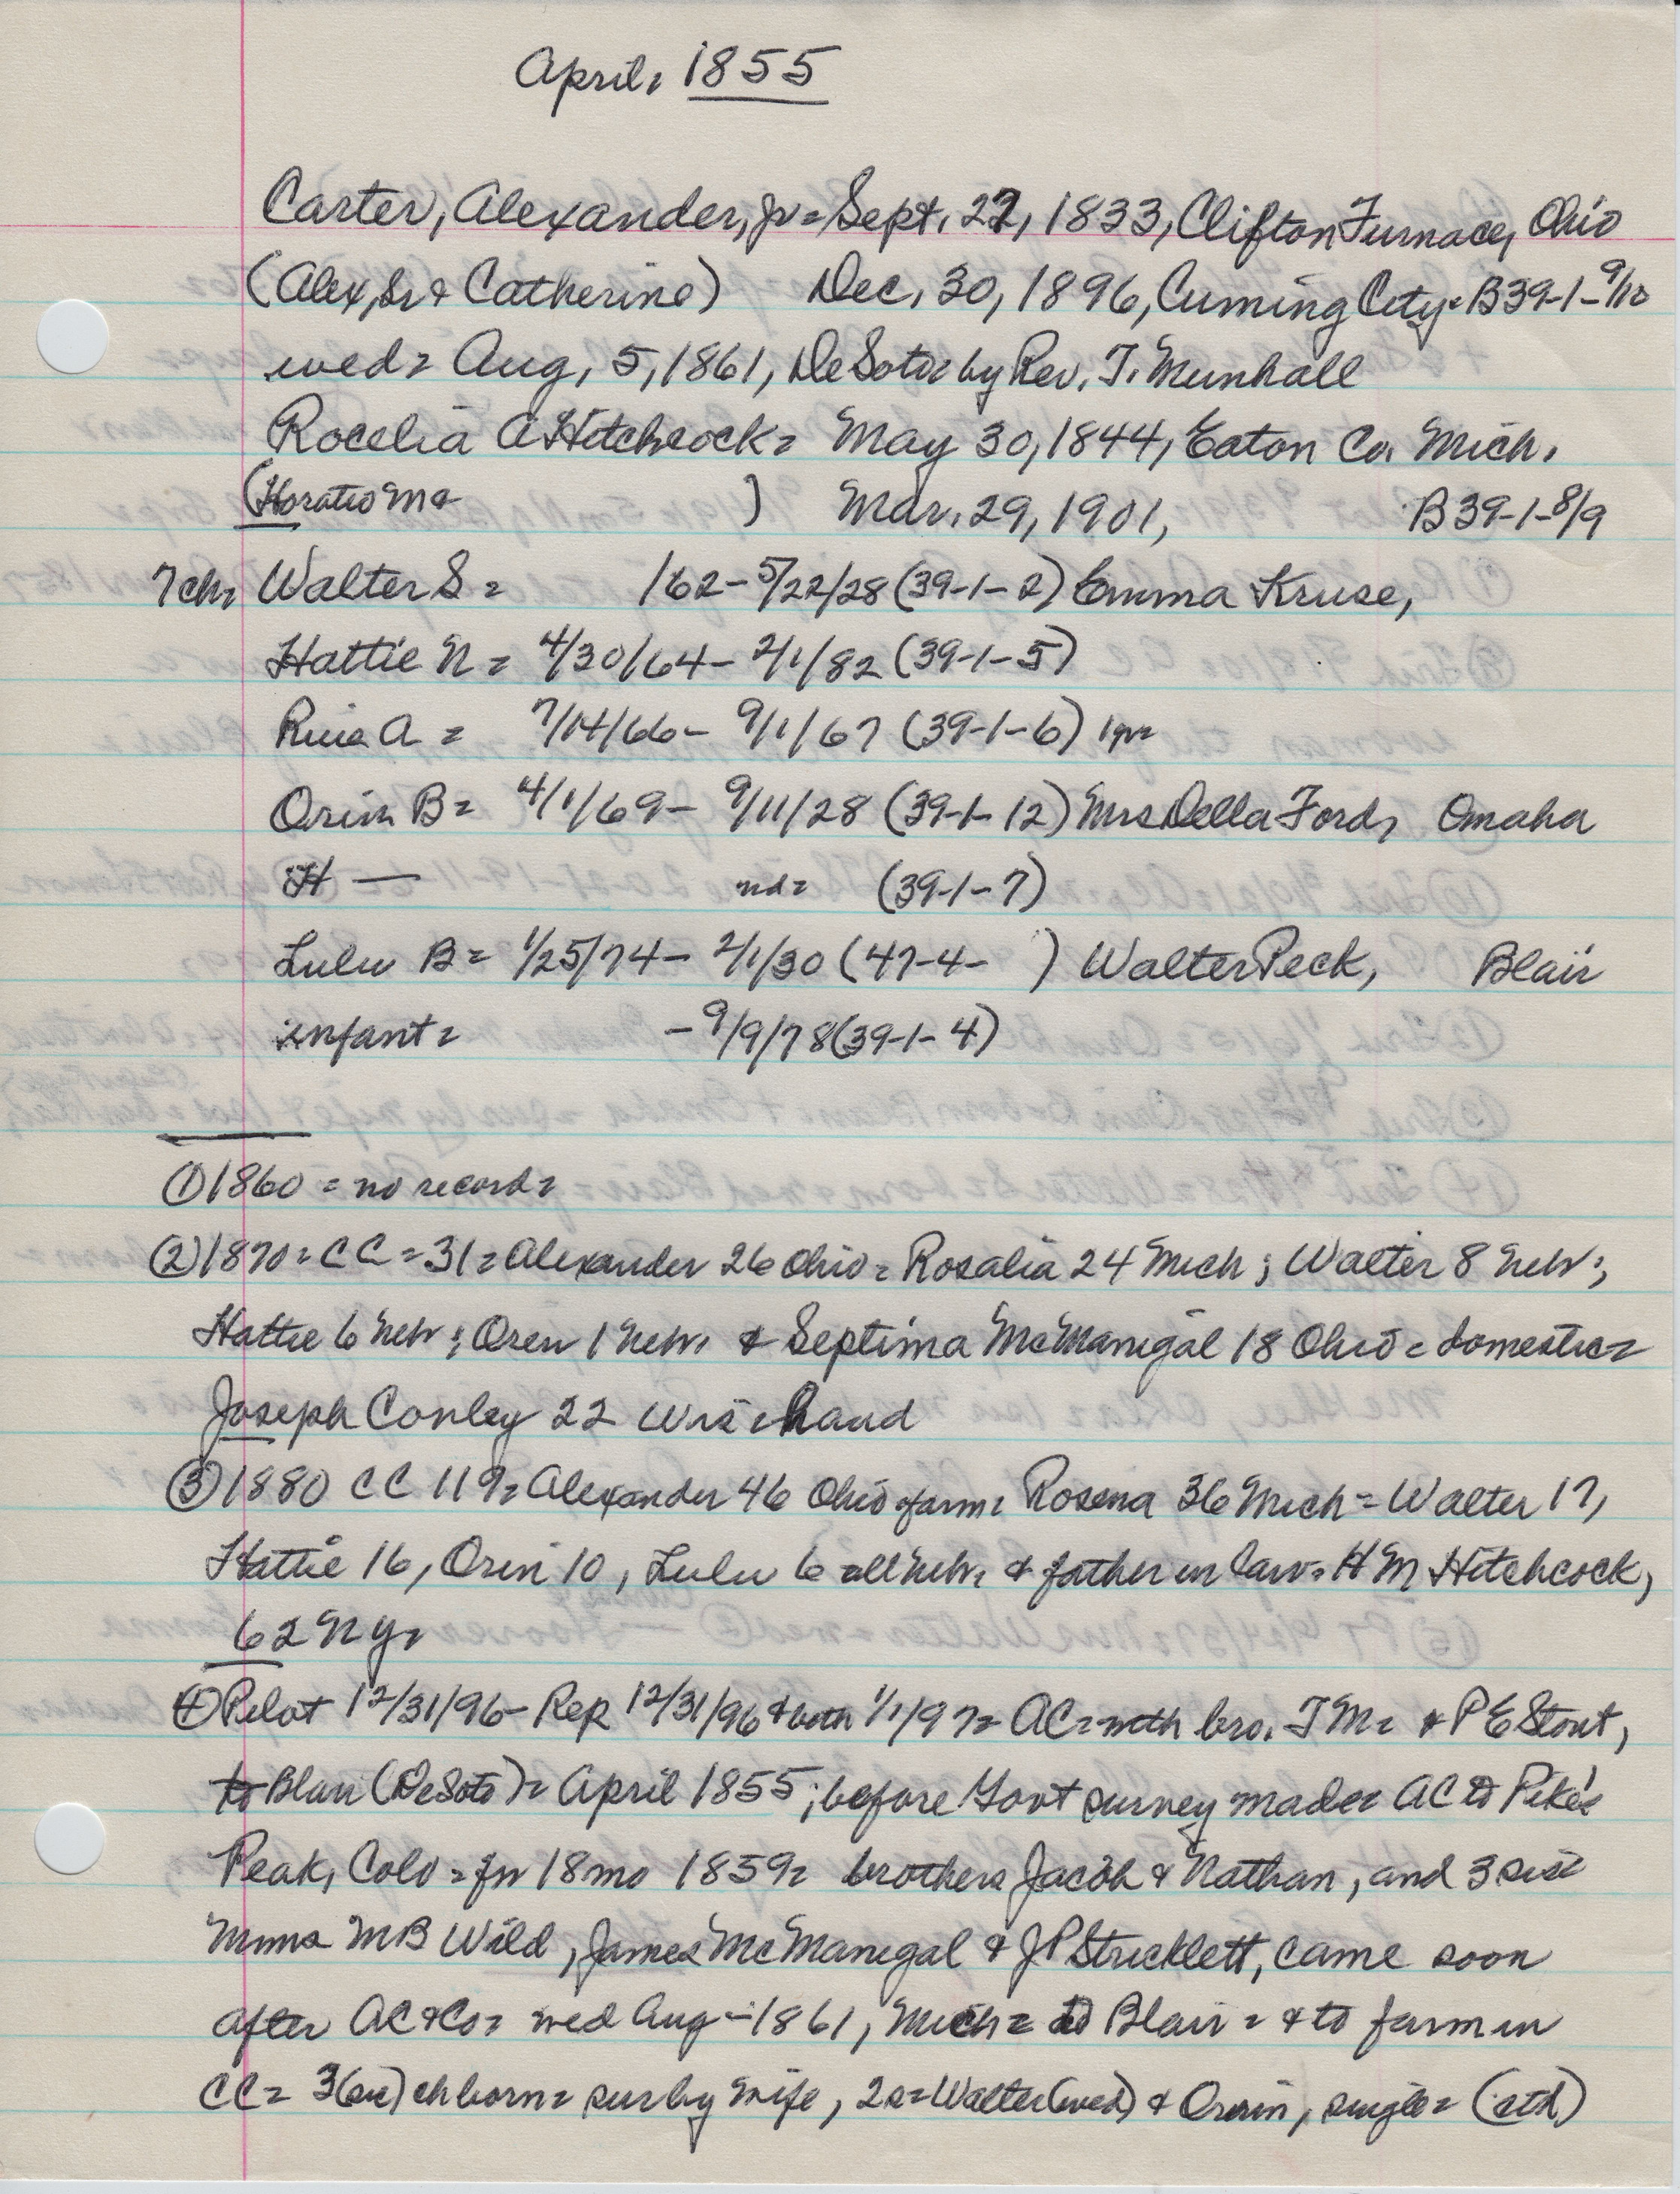 April, 1855
Carter, Alexander, Jr= Sept. 27, 1833, Clifton Furnace, Ohio
(Alex, Sr & Catherine) Dec. 30, 1896, Cuming City= B39-1-9/10
wed= Aug, 5, 1861, DeSoto= by Rev. T. Munhall
Rocelia A Hitchcock= May 30, 1844, Eaton Co. Mich.
(Horatio M & ) Mar. 29, 1901, B39-1-8/9
7 ch= Walter S = /62- 5/22/28 (39-1-2) Emma Kruse,
Hattie N = 4/30/64- 2/1/82 (39-1-5)
A = 7/14/66- 9/1/67 (39-1-6) 1yr=
Orin B= 4/1/69- 9/11/28 (39-1-12) Mrs Della Ford, Omaha
H — nd= (39-1-7)
Lulu B= 1/25/74- 2/1/30 (47-4- ) Walter Peck, Blair
infant= -9/9/78 (39-1-4)
① 1860 = no record=
② 1870= CC=31= Alexander 26 Ohio= Rosalia 24 Mich; Walter 8 Neb;
Hattie 6 Neb; Oren 1 Neb. & Septima McManigal 18 Ohio= domestic=
Joseph Conley 22 Wis= hand
③ 1880 CC 119= Alexander 46 Ohio farm= Rosena 36 Mich= Walter 17,
Hattie 16, Orin 10, Lulu 6 all Neb. & father in law= H M Hitchcock,
62 NY=
④ Pilot 12/31/96- Rep 12/31/96 & both 1/1/97= AC= with bro. T M= & P E Stout,
to Blair (DeSoto)= April 1855; before Govt survey made= AC to Pike's
Peak, Colo= for 18 mo 1859= brothers Jacob & Nathan, and 3 sis=
Mmes MB Wild, James McManigal & JP Stricklett, came soon
after AC & Co= wed Aug -1861, Mich= to Blair= & to farm in
CC= 3(sic) ch born= sur by wife, 2s= Walter (wed) & Orrin, single= (std)